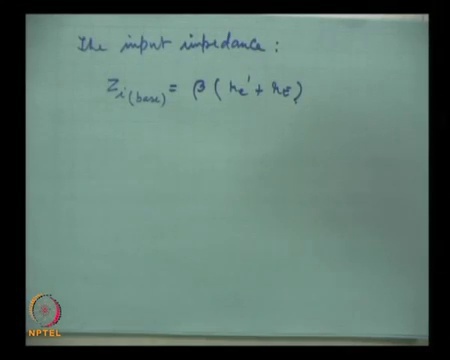 The input impedance :
Zi(base) = β ( re' + rE )
NPTEL